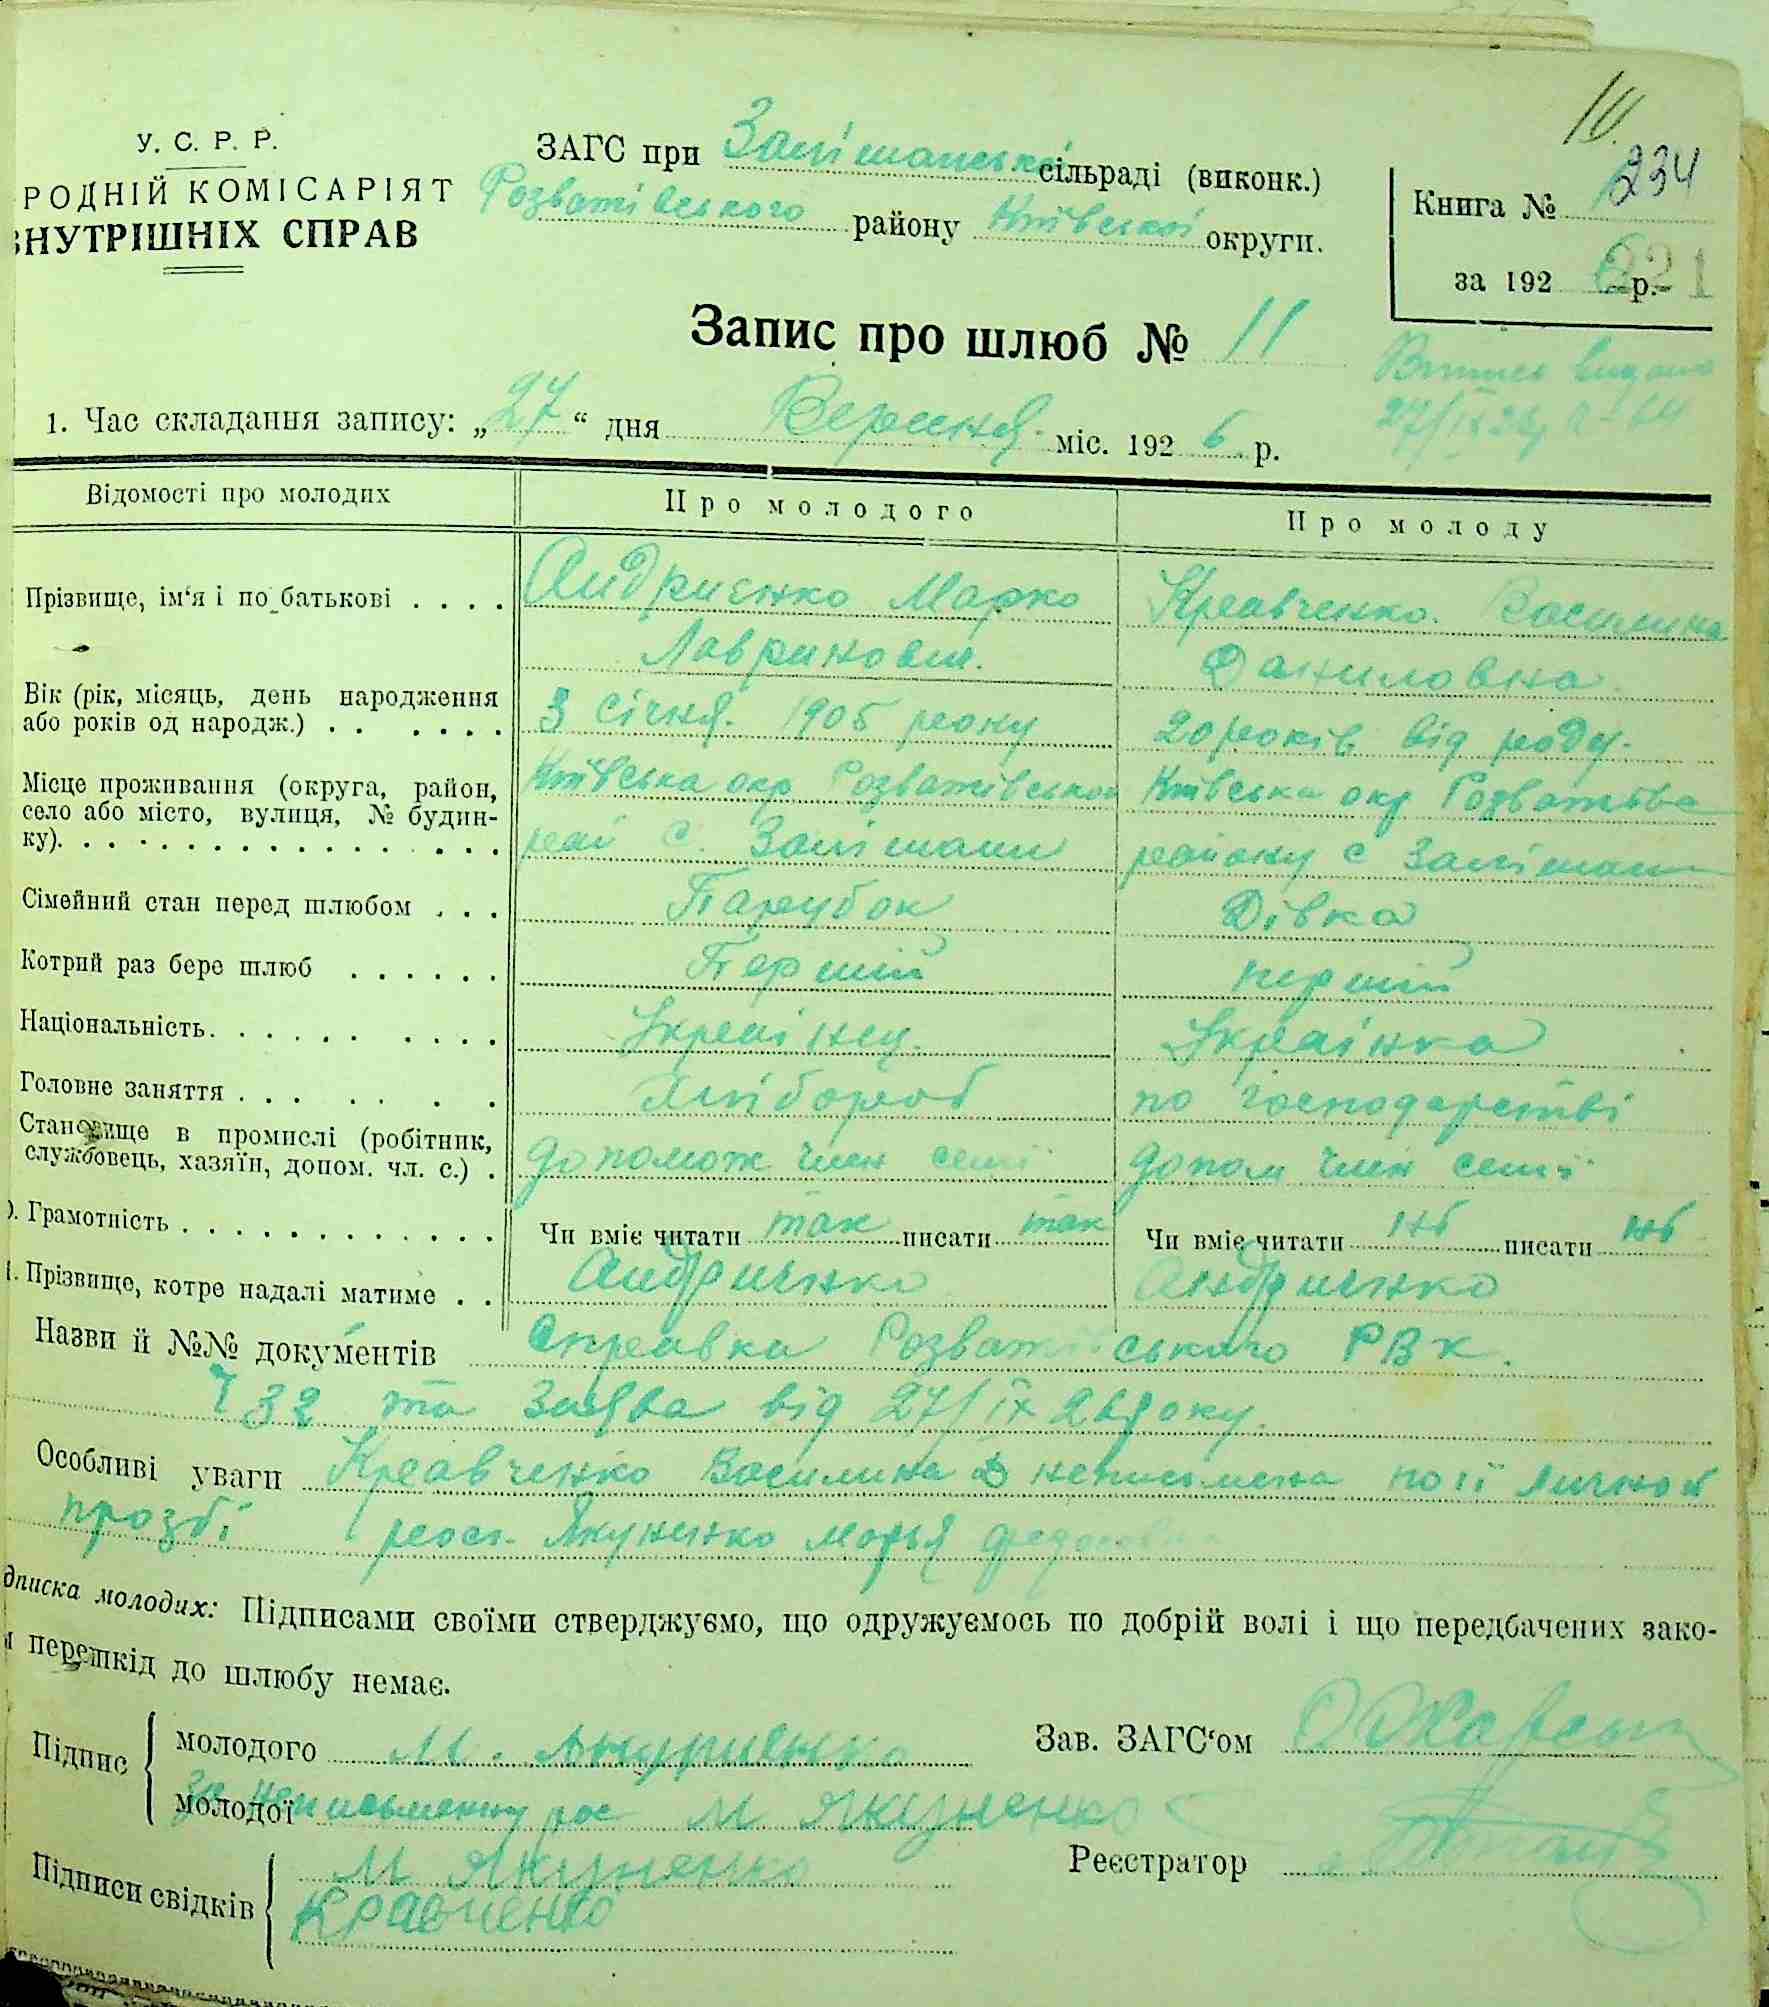 10.
234
У. С. Р. Р.
РОДНІЙ КОМІСАРІЯТ
ВНУТРІШНІХ СПРАВ
ЗАГС при Залішанській сільраді (виконк.)
Розватівського району Київської округи.
Книга №
за 192 6 р.
221
Запис про шлюб № 11
Витись видано
27/IX 26
1. Час складання запису: „27“ дня Вересня міс. 192 6 р.
Відомості про молодих Про молодого Про молоду
Прізвище, ім‘я і по батькові . . . . Андриєнко Марко Кравченко Василина
Лавринович. Даниловна
Вік (рік, місяць, день народження або років од народж.) . . . . . . 3 Січня 1905 року 20 років від роду.
Місце проживання (округа, район, село або місто, вулиця, № будинку). Київська окр Розватівськой Київська окр Розватівсько
рай С. Залішани району с Залішани
Сімейний стан перед шлюбом . . . Парубок Дівка
Котрий раз бере шлюб . . . . . . Перший перший
Національність. . . . . . . . . . Українец. Українка
Головне заняття . . . . . . . Хлібороб по господарстві
Становище в промислі (робітник, службовець, хазяїн, допом. чл. с.) . допомож член семї допом член семї
). Грамотність . . . . . . . . . . . Чи вміє читати так писати так Чи вміє читати ні писати ні
. Прізвище, котре надалі матиме . . Андриєнко Андриенко
Назви й №№ документів Справка Розватівського РВК.
32 та Заява від 27/IX 26 року.
Особливі уваги Кравченко Василина Д неписьмена по її личной
прозбі рос. Якуненко Марья Федоровна
дписка молодих: Підписами своїми стверджуємо, що одружуємось по добрій волі і що передбачених зако-
и перешкід до шлюбу немає.
Підпис молодого М. Андриенко
Зав. ЗАГС‘ом
молодої За неписьменну рос М Якуненко
Реєстратор
Підписи свідків М Якуненко
Кравченко